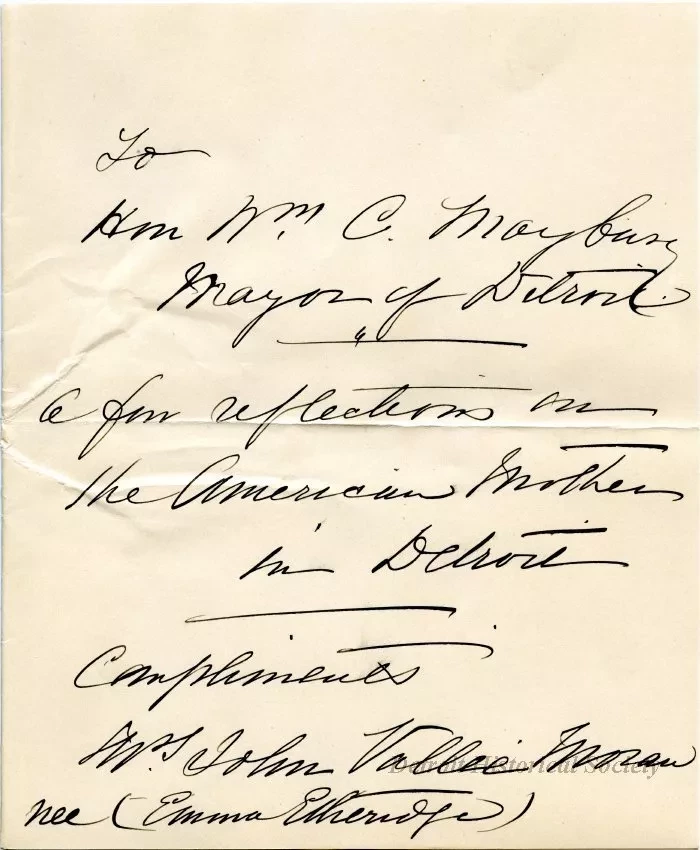 To
Hon Wm C. Maybury
Mayor of Detroit
"
a few reflections on
the American Mother
in Detroit
Compliments
Mrs John Vallee Moran
nee (Emma Etheridge)
Detroit Historical Society